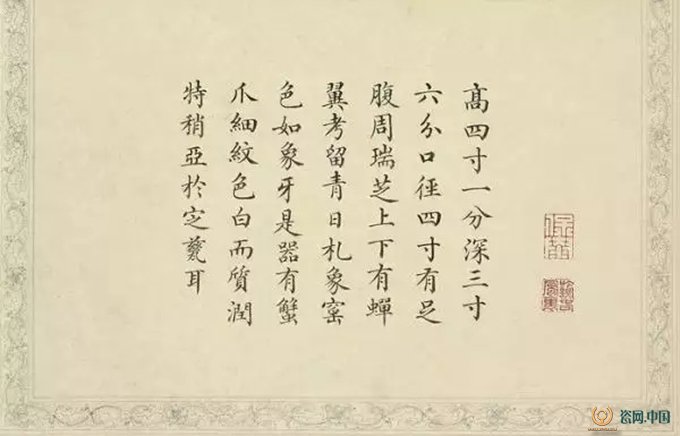 高四寸一分深三寸
六分口徑四寸有足
腹周瑞芝上下有蟬
翼考留青日札象窰
色如象牙是器有蟹
爪細紋色白而質潤
特稍亞於定甆耳
瓷网.中国